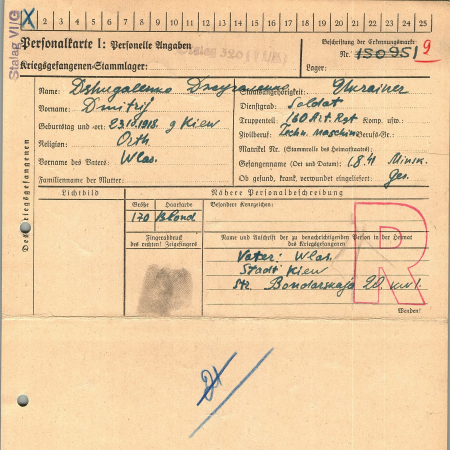 X 2 3 4 5 6 7 8 9 10 11 12 13 14 15 16 17 18 19 20 21 22 23 24 25
Stalag VI/G
Personalkarte I: Personelle Angaben
Beschriftung der Erkennungsmarke
Nr. 150951 9
Kriegsgefangenen-Stammlager:
Lager:
Des Kriegsgefangenen
Name: Dshugalenko
Staatsangehörigkeit: Ukrainer
Vorname: Dmitrij
Dienstgrad: Soldat
Truppenteil: 160 Art. Rgt Komp. usw.
Geburtstag und -ort: 23.10.1918. g Kiew
Zivilberuf: Techn. maschin Berufs-Gr.:
Religion: Orth
Matrikel Nr. (Stammrolle des Heimatstaates):
Vorname des Vaters: Wlas.
Gefangennahme (Ort und Datum): 1.8.41 Minsk.
Familienname der Mutter:
Ob gesund, krank, verwundet eingeliefert: Ges.
Lichtbild
Nähere Personalbeschreibung
Größe
Haarfarbe
Besondere Kennzeichen:
170
Blond
Fingerabdruck
des rechten! Zeigefingers
Name und Anschrift der zu benachrichtigenden Person in der Heimat
des Kriegsgefangenen
Vater: Wlas.
Stadt Kiew
Str. Bondarskaja 20. kw 1.
R
Wenden!